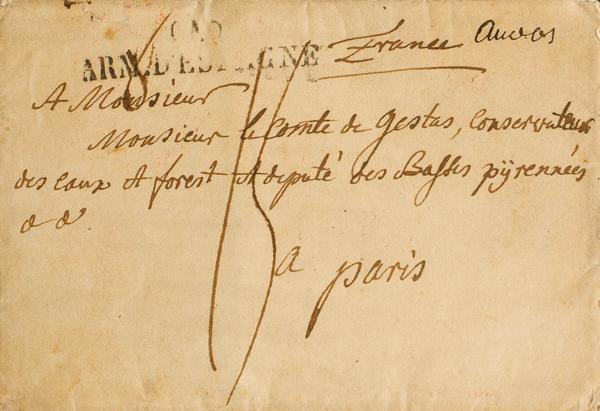 ARM. D'ESPAGNE
France
A Monsieur
Monsieur le Comte de Gestas, Conservateur
des eaux et forest et deputé des Basses pÿrennées
a paris